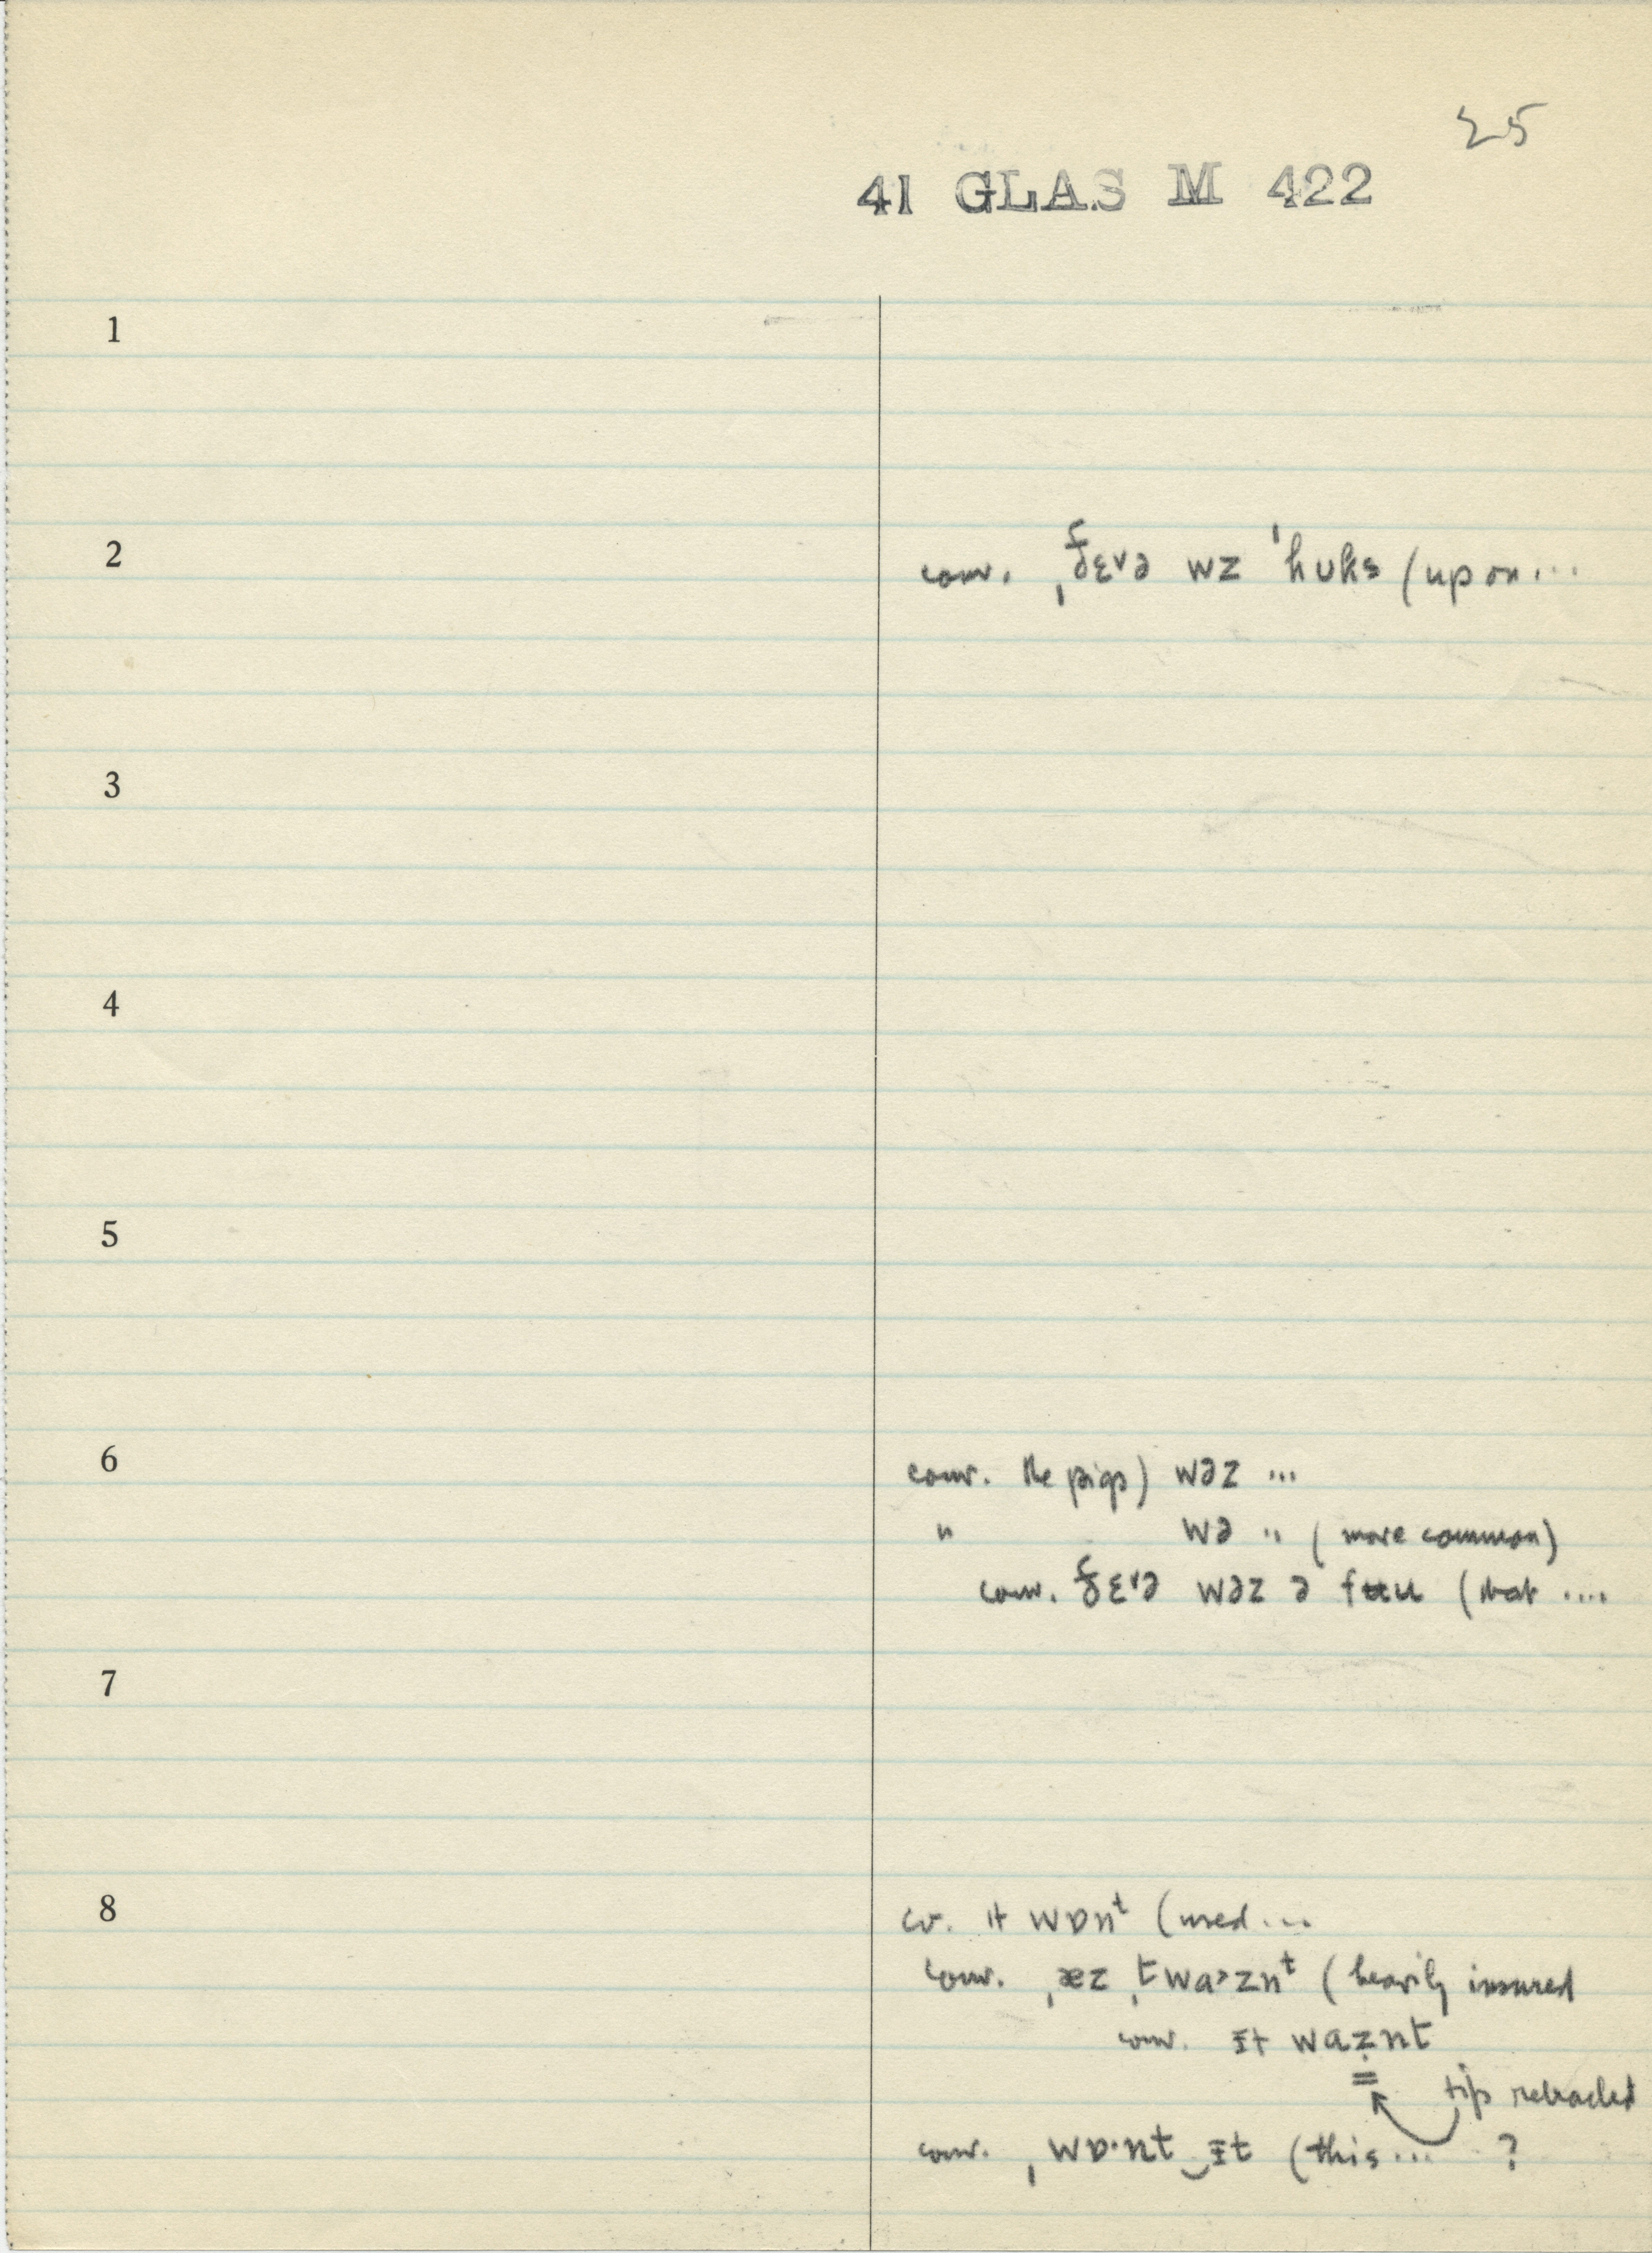 25
41 GLAS M 422
1
2 conv. ˌðɛɚə wz ˈhʊks (upon...
3
4
5
6 conv. the pigs) wəz ...
" wə " (more common)
conv. ðɛɚə wəz ə fʉu (that ....
7
8 cv. it wɒnᵗ (used...
conv. ˌæz ˌtwa˃znᵗ (heavily insured
conv. ɪt waẓnt
tip retracted
conv. ˌwɒ·nt‿ɪt (this... ?